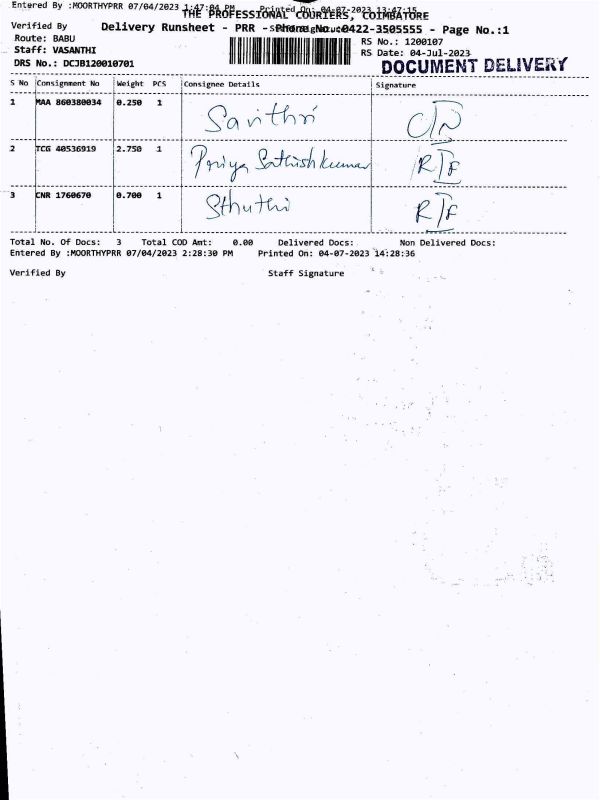 Entered By :MOORTHYPRR 07/04/2023 1:47:04 PM Printed On: 04-07-2023 13:47:15
THE PROFESSIONAL COURIERS, COIMBATORE
Verified By
Delivery Runsheet - PRR - Phone No.:0422-3505555 - Page No.:1
Route: BABU
RS No.: 1200107
Staff: VASANTHI
RS Date: 04-Jul-2023
DRS No.: DCJB120010701
DOCUMENT DELIVERY
S No Consignment No Weight PCS Consignee Details Signature
1 MAA 860380034 0.250 1 Savithri
2 TCG 40536919 2.750 1 Priya Sathishkumar
3 CNR 1760670 0.700 1 Sthuthi
Total No. Of Docs: 3 Total COD Amt: 0.00 Delivered Docs: Non Delivered Docs:
Entered By :MOORTHYPRR 07/04/2023 2:28:30 PM Printed On: 04-07-2023 14:28:36
Verified By Staff Signature